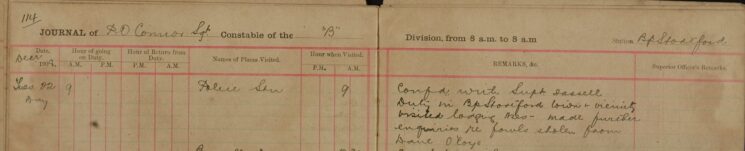 114
JOURNAL of D O Connor Sgt Constable of the "B" Division, from 8 a.m. to 8 a.m Station Bp Stortford
Date. Hour of going on Duty. Hour of Return from Duty. Names of Places Visited. Hour when Visited. REMARKS, &c. Superior Officer's Remarks.
Decr A.M. P.M. P.M. A.M. P.M. A.M.
Tues 22 9 Police Stn 9 Confd with Supt Dassell
Day Duty in Bp Stortford town & vicinity
visited lodging Hses - made further
enquiries re fowls stolen from